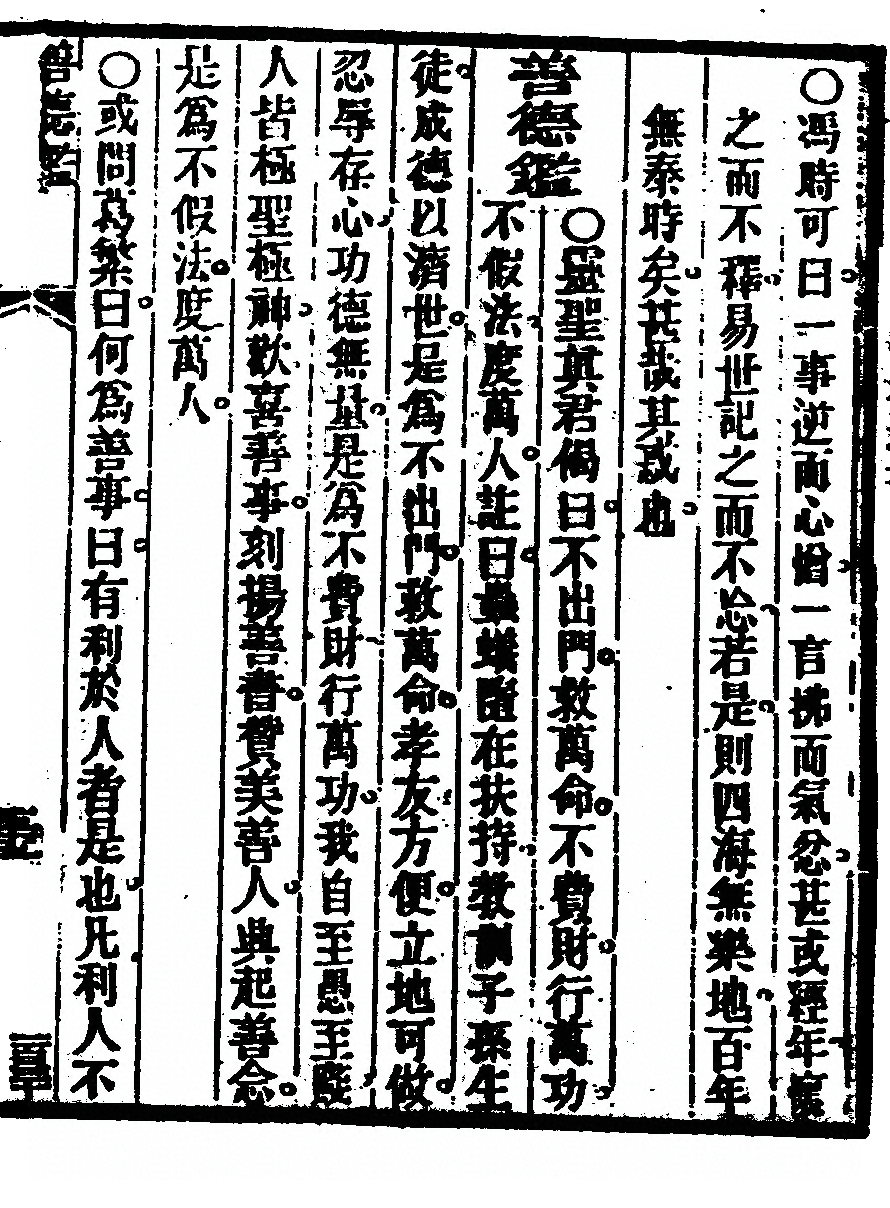 ○馮時可曰一事逆而心憎一言拂而氣忿甚或經年懷
之而不釋易世記之而不忘若是則四海無樂地百年
無泰時矣甚哉其惑也
善德鑑
○靈聖眞君偈曰不出門救萬命不費財行萬功
不假法度萬人註曰蟲蟻隨在扶持教訓子孫生
徒成德以濟世是爲不出門救萬命孝友方便立地可做
忍辱存心功德無量是爲不費財行萬功我自至愚至賤
人皆極聖極神歡喜善事刻揚善書贊美善人興起善念
是爲不假法度萬人
○或問葛繁曰何爲善事曰有利於人者是也凡利人不
善德鑑